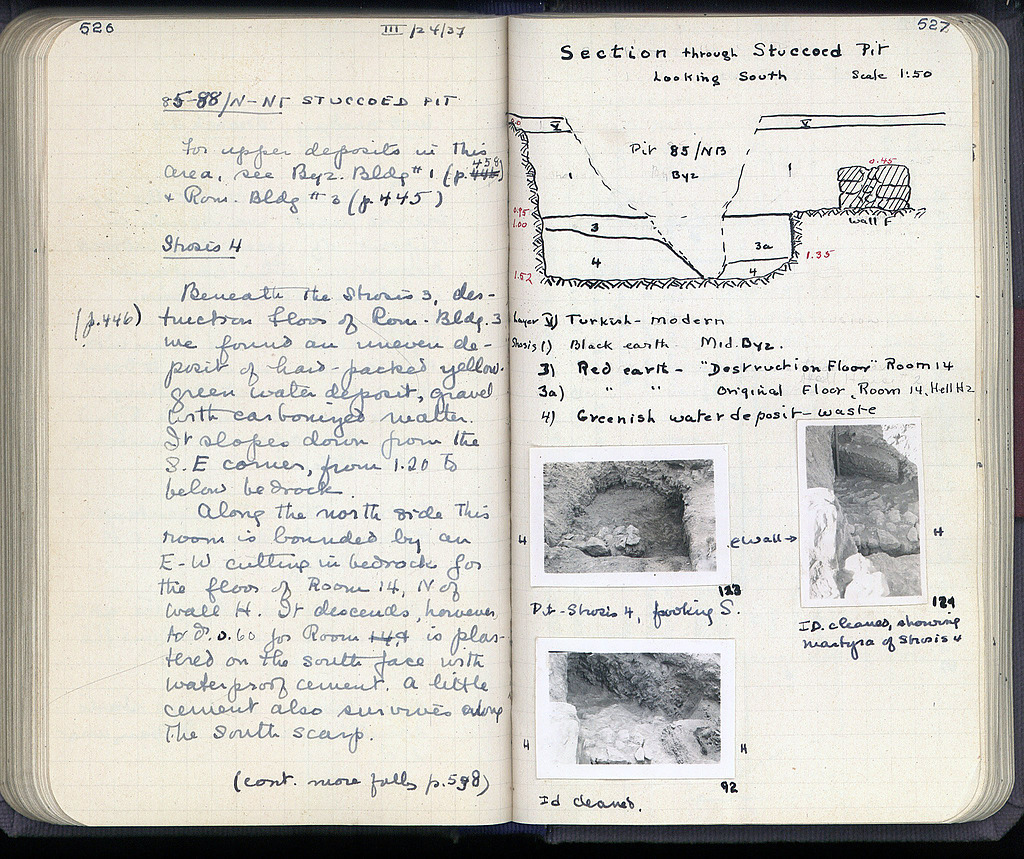 526
III /24/37
85-88/N-NΓ STUCCOED PIT
For upper deposits in this
area, see Byz. Bldg # 1 (p. 458)
+ Rom. Bldg # 3 (p. 445)
Strosis 4
Beneath the Strosis 3, des-
(p. 446) truction floor of Rom. Bldg. 3
we found an uneven de-
posit of hard-packed yellow-
green water deposit, gravel
with carbonized matter.
It slopes down from the
S.E corner, from 1.20 to
below bedrock.
Along the north side this
room is bounded by an
E-W cutting in bedrock for
the floor of Room 14, N of
wall H. It descends, however,
to 0.60 for Room is plas-
tered on the south face with
waterproof cement. A little
cement also survives along
the South scarp.
(cont. more fully p. 598)
527
Section through Stuccoed Pit
Looking South Scale 1:50
V V
Pit 85/NB
Byz
1 1
0.45
wall F
0.95
1.00
3
3a
4
4
1.35
1.52
Layer V) Turkish - modern
Strosis 1) Black earth Mid. Byz.
3) Red earth - "Destruction Floor" Room 14
3a) " " Original Floor, Room 14, Hell H2
4) Greenish water deposit - waste
H
e wall →
H
123
124
Pit - Strosis 4, looking S.
ID. cleaned, showing
martyra of Strosis 4
H
H
92
Id cleaned.